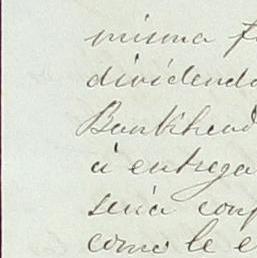 misma f
dividendo
Bankhead
á entrega
seria con
como le e